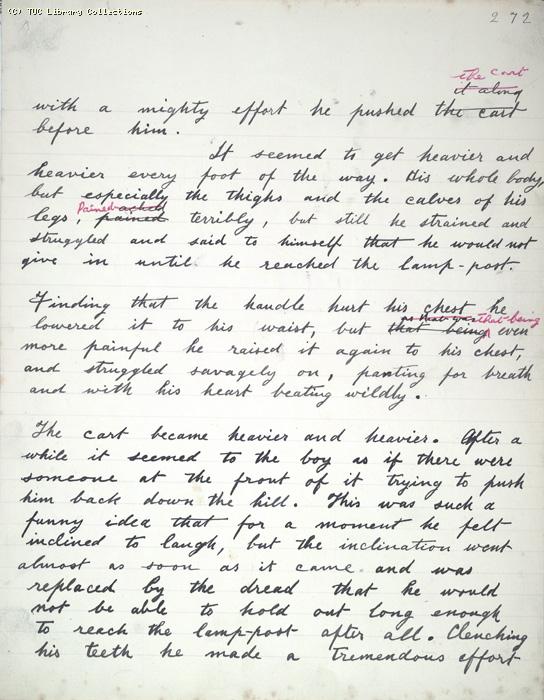 (C) TUC Library Collections
272
the cart
it along
with a mighty effort he pushed the cart
before him.
It seemed to get heavier and
heavier every foot of the way. His whole body,
but especially the thighs and the calves of his
Pained ached
legs, pained terribly, but still he strained and
struggled and said to himself that he would not
give in until he reached the lamp-post.
Finding that the handle hurt his chest he
as that was that being
lowered it to his waist, but that being even
more painful he raised it again to his chest,
and struggled savagely on, panting for breath
and with his heart beating wildly.
The cart became heavier and heavier. After a
while it seemed to the boy as if there were
someone at the front of it trying to push
him back down the hill. This was such a
funny idea that for a moment he felt
inclined to laugh, but the inclination went
almost as soon as it came and was
replaced by the dread that he would
not be able to hold out long enough
to reach the lamp-post after all. Clenching
his teeth he made a tremendous effort